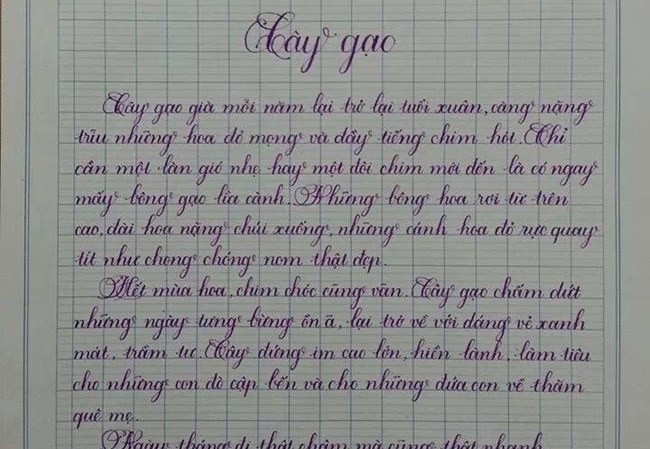 Cây gạo
Cây gạo già mỗi năm lại trở lại tuổi xuân, càng nặng
trĩu những hoa đỏ mọng và đầy tiếng chim hót. Chỉ
cần một làn gió nhẹ hay một đôi chim mới đến là có ngay
mấy bông gạo lìa cành. Những bông hoa rơi từ trên
cao, đài hoa nặng chúi xuống, những cánh hoa đỏ rực quay
tít như chong chóng nom thật đẹp.
Hết mùa hoa, chim chóc cũng vãn. Cây gạo chấm dứt
những ngày tưng bừng ồn ã, lại trở về với dáng vẻ xanh
mát, trầm tư. Cây đứng im cao lớn, hiền lành, làm tiêu
cho những con đò cập bến và cho những đứa con về thăm
quê mẹ.
Ngày tháng đi thật chậm mà cũng thật nhanh.